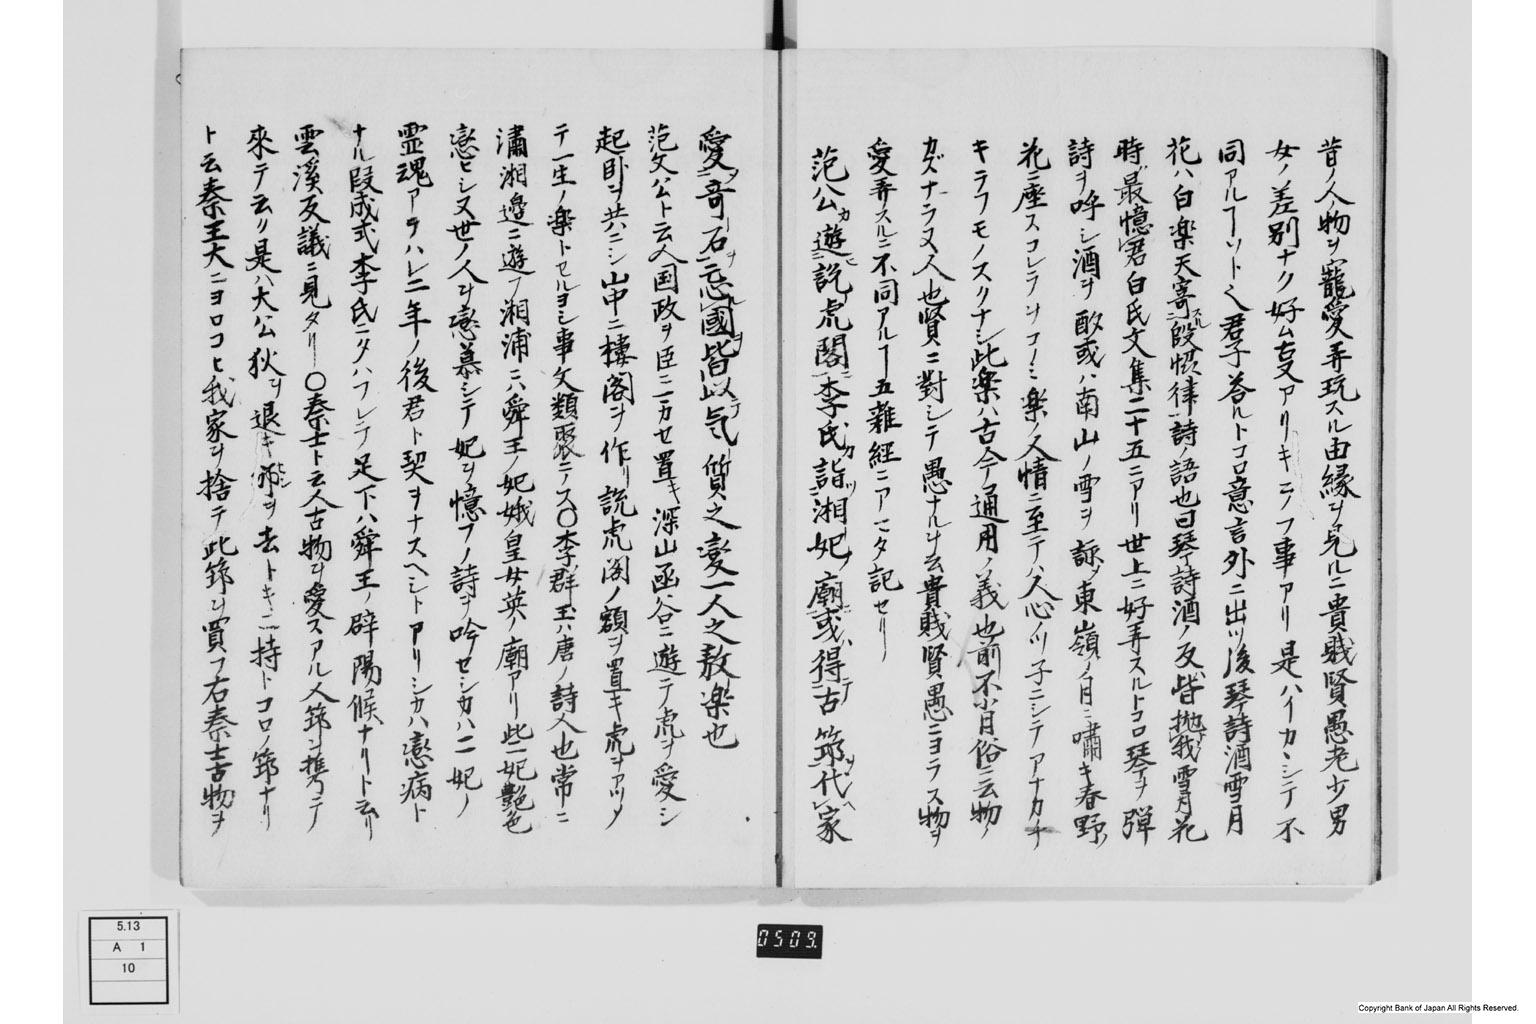 昔ノ人物ヲ寵愛弄玩スル由縁ヲ見ルニ貴賎賢愚老少男
女ノ差別ナク好ム古又アリキニフ事アリ是ハイカンシテ不
同アルヿソトヘハ君子答ルトコロ意言外ニ出ツ後琴詩酒雪月
花ハ白楽天寄殷協律詩ノ語也曰琴詩酒ノ友皆抛我雪月花
時最憶君白氏文集二十五ニアリ世上ニ好弄スルトコロ琴ヲ弾
詩ヲ呼シ酒ヲ酌或ハ南山ノ雪ヲ詠東嶺ノ月ニ嘯キ春野ノ
花ニ座スコレラヲコノミ楽ノ人情ニ至テハ人心ノツ子ニシテアナカチ
キラフモノスクナシ此楽ハ古今通用ノ義也前不月俗ニ云物ノ
カズナラヌ人也賢ニ對シテ愚ナルヲ云貴賎賢愚ニヨラス物ヲ
愛弄スルニ不同アルヿ五雜經ニアマタ記セリ
范公遊説虎閣李氏詣湘妃廟或得古筇代家
愛奇石忘國皆以气質之變一人之敖楽也
范文公ト云人国政ヲ臣ニマカセ置キ深山函谷ニ遊テ虎ヲ愛シ
起卧ヲ共ニシ山中ニ樓閣ヲ作リ説虎閣ノ額ヲ置キ虎ヲアツメ
テ一生ノ楽トセルヨシ事文類聚ニノス〇李群玉ハ唐ノ詩人也常ニ
瀟湘邊ニ遊フ湘浦ニハ舜王ノ妃娥皇女英ノ廟アリ此二妃艶色
戀セシ又世ノ人ヲ戀慕シテ妃ヲ憶フノ詩ヲ吟セシカハ二妃ノ
霊魂アラハレ二年ノ後君ト契ヲナスヘシトアリシカハ戀病ト
ナル段成式李氏ニタハフレテ足下ハ舜王ノ辟陽候ナリト云リ
雲溪友議ニ見タリ〇秦士ト云人古物ヲ愛スアル人筇ヲ携ニテ
來テ云リ是ハ大公狄ヲ退キ邠ヲ去トキニ持トコロノ筇ナリ
ト云秦王大ニヨロコヒ我家ヲ捨テ此筇ヲ買フ右秦士古物ヲ
5.13
A 1
10
0509.
Copyright Bank of Japan All Rights Reserved.